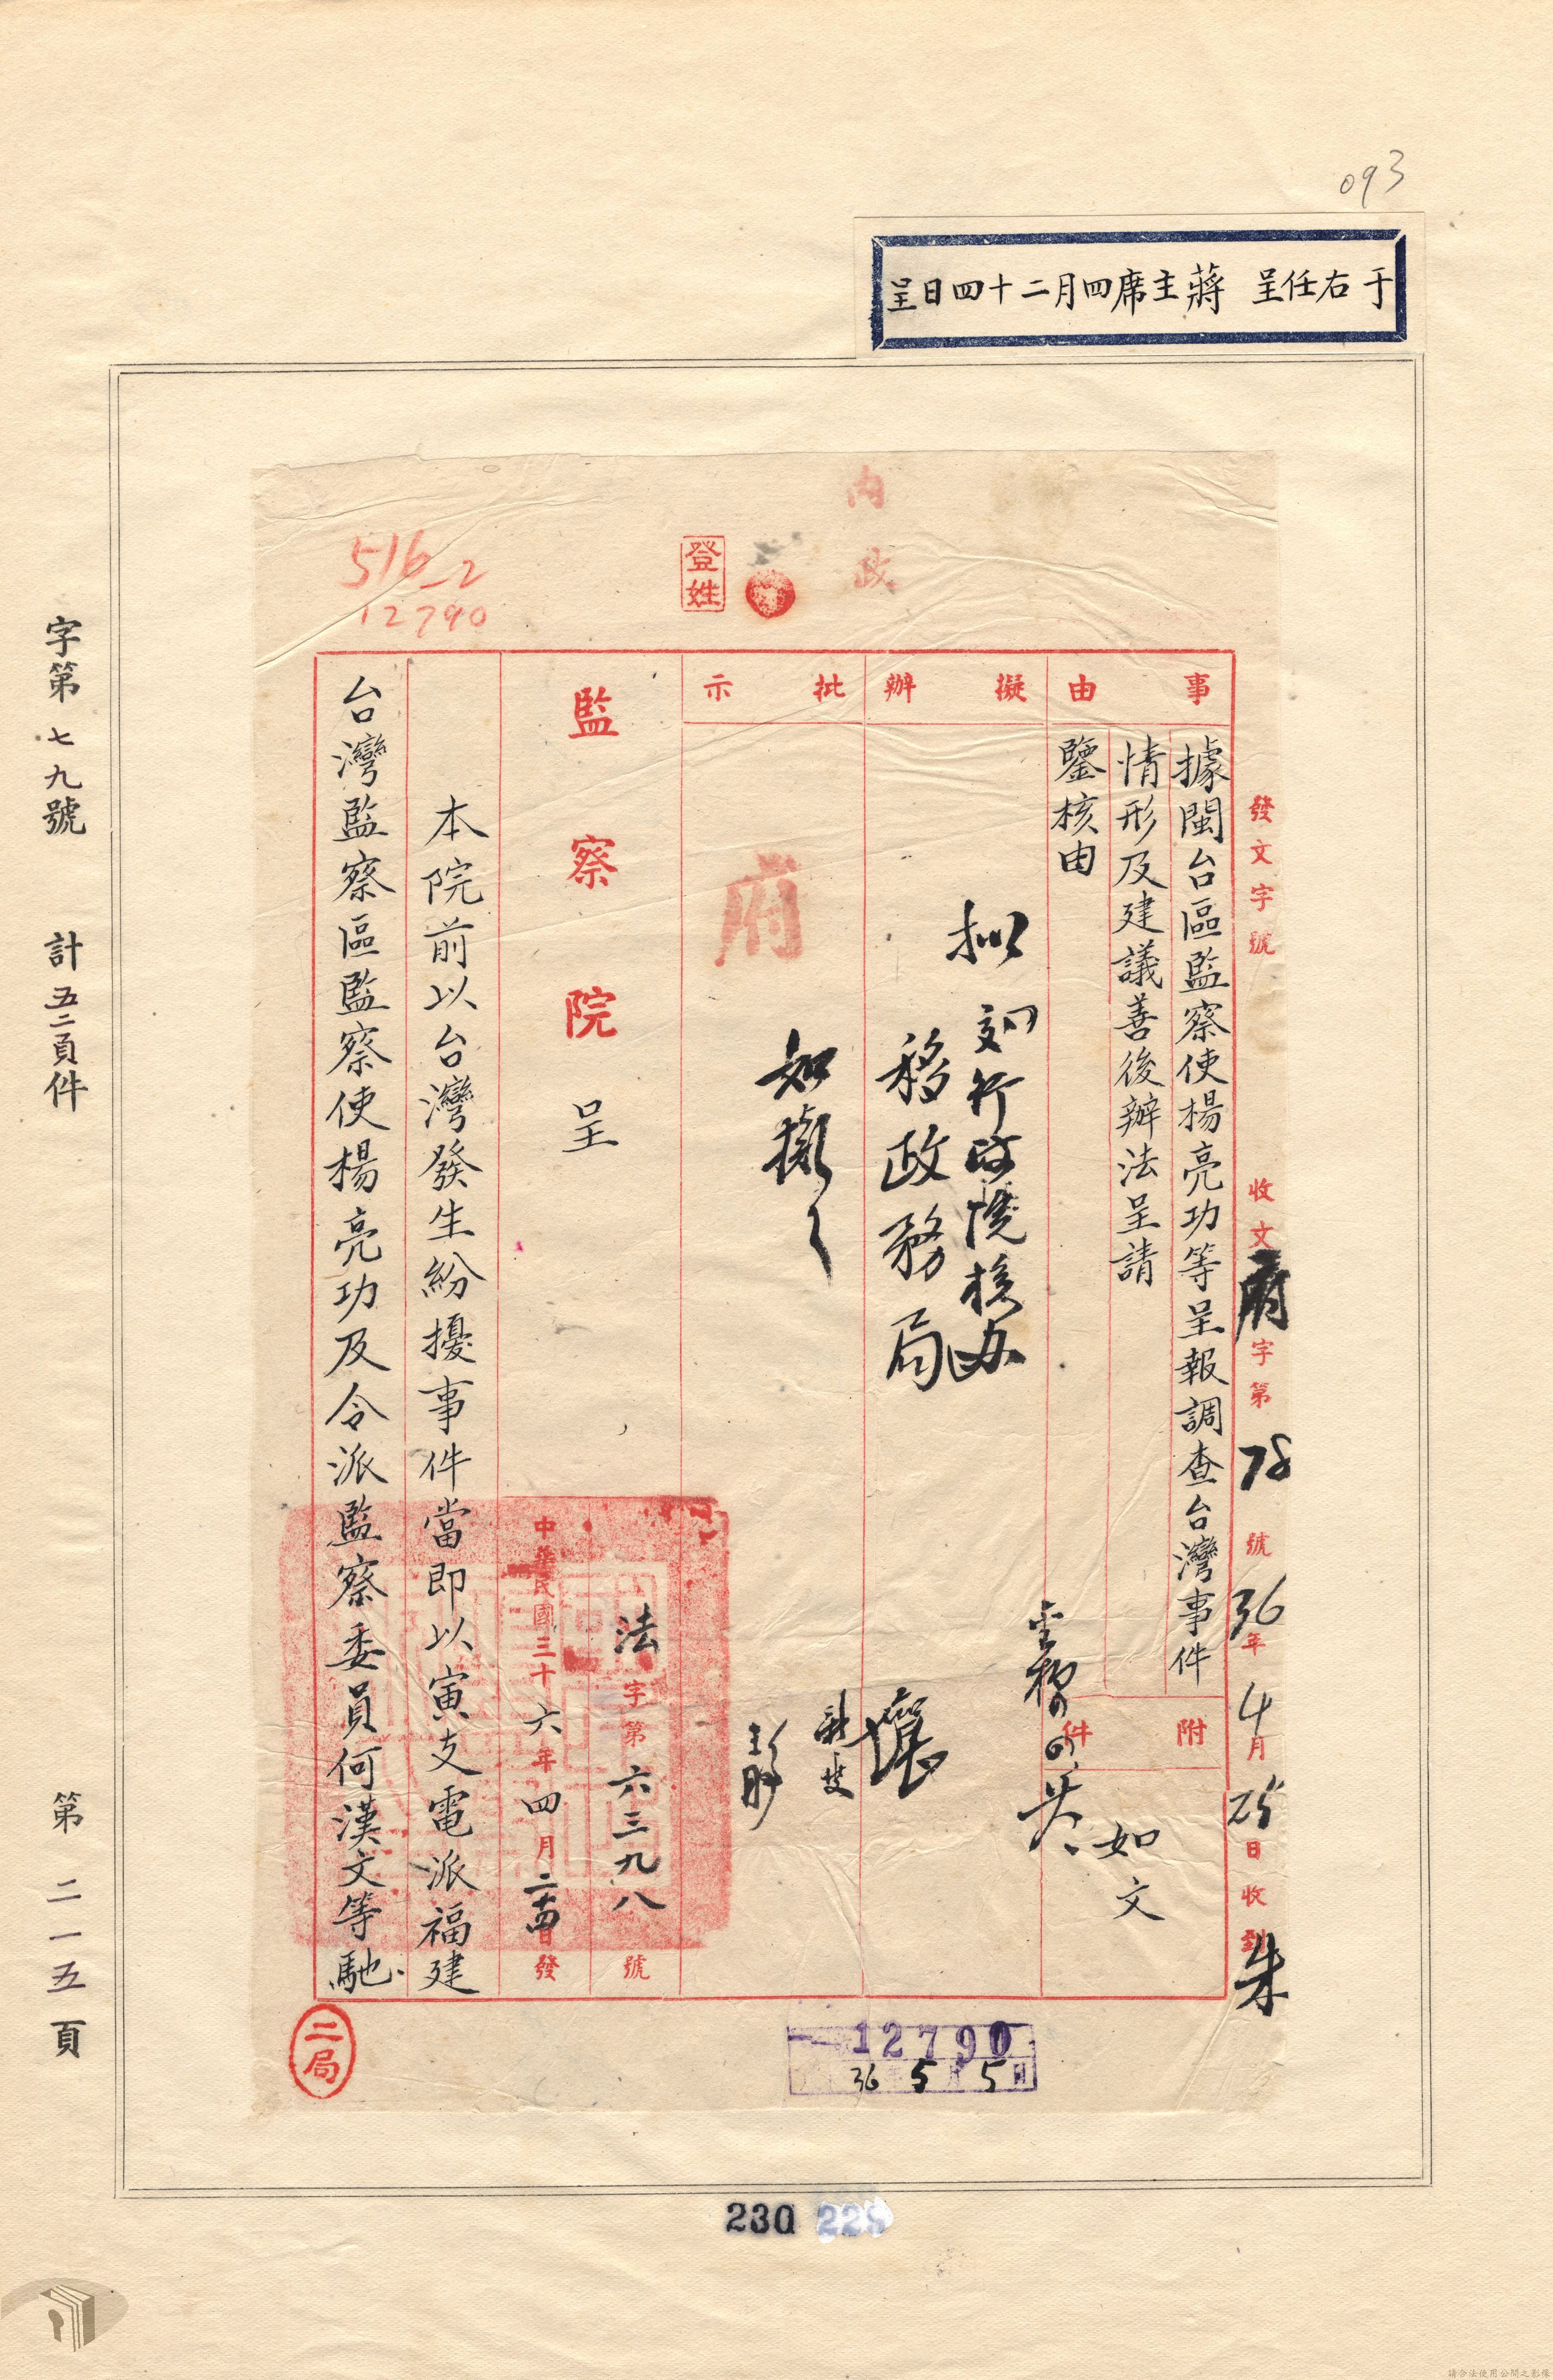 093
于右任呈 蔣主席四月二十四日呈
內政
登姓
516-2
12790
發文字號
收文府字第78號36年4月25日收到
朱
事由
據閩台區監察使楊亮功等呈報調查台灣事件
情形及建議善後辦法呈請
鑒核由
附件
如文
擬辦
擬 交行政院核办
移政務局
批示
府
如擬
監察院 呈
法字第六三九八號
中華民國三十六年四月二十四日發
本院前以台灣發生紛擾事件當即以寅支電派福建
台灣監察區監察使楊亮功及令派監察委員何漢文等馳
二局
12790
36 5月5日
字第七九號 計五二頁件 第二一五頁
230 229
請合法使用公開之影像